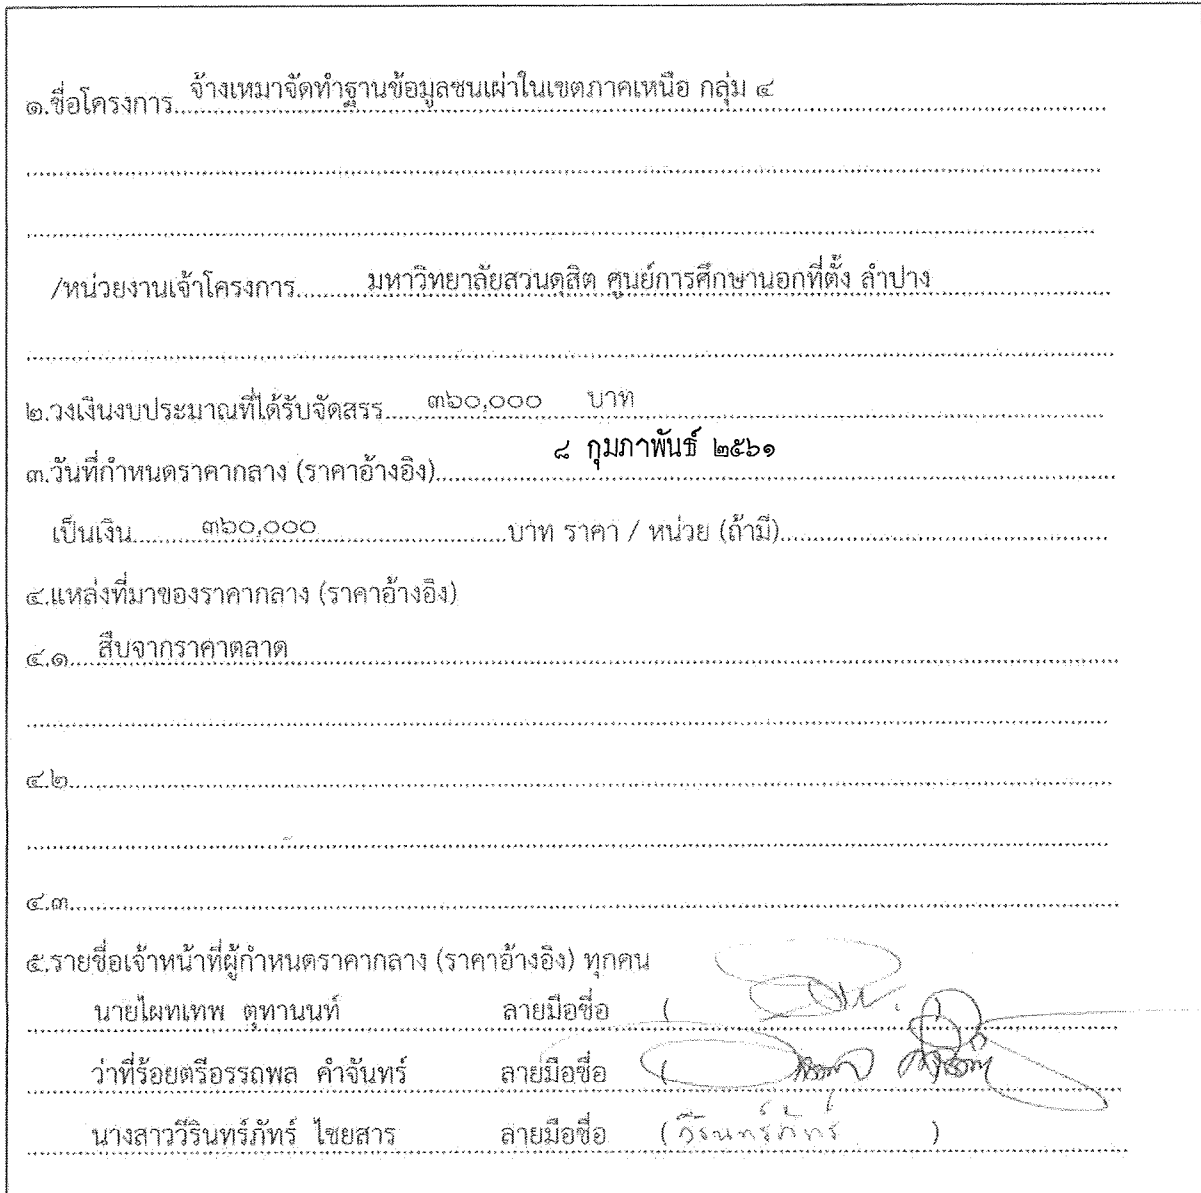 ๑.ชื่อโครงการ...จ้างเหมาจัดทำฐานข้อมูลชนเผ่าในเขตภาคเหนือ กลุ่ม ๔
/หน่วยงานเจ้าโครงการ...มหาวิทยาลัยสวนดุสิต ศูนย์การศึกษานอกที่ตั้ง ลำปาง
๒.วงเงินงบประมาณที่ได้รับจัดสรร...๓๖๐,๐๐๐ บาท
๓.วันที่กำหนดราคากลาง (ราคาอ้างอิง)...๘ กุมภาพันธ์ ๒๕๖๑
เป็นเงิน...๓๖๐,๐๐๐...บาท ราคา / หน่วย (ถ้ามี)...
๔.แหล่งที่มาของราคากลาง (ราคาอ้างอิง)
๔.๑...สืบจากราคาตลาด
๔.๒...
๔.๓...
๕.รายชื่อเจ้าหน้าที่ผู้กำหนดราคากลาง (ราคาอ้างอิง) ทุกคน
นายไผทเทพ ตุทานนท์ ลายมือชื่อ ( )
ว่าที่ร้อยตรีอรรถพล คำจันทร์ ลายมือชื่อ ( )
นางสาววีรินทร์ภัทร์ ไชยสาร ลายมือชื่อ ( วีรินทร์ภัทร์ )